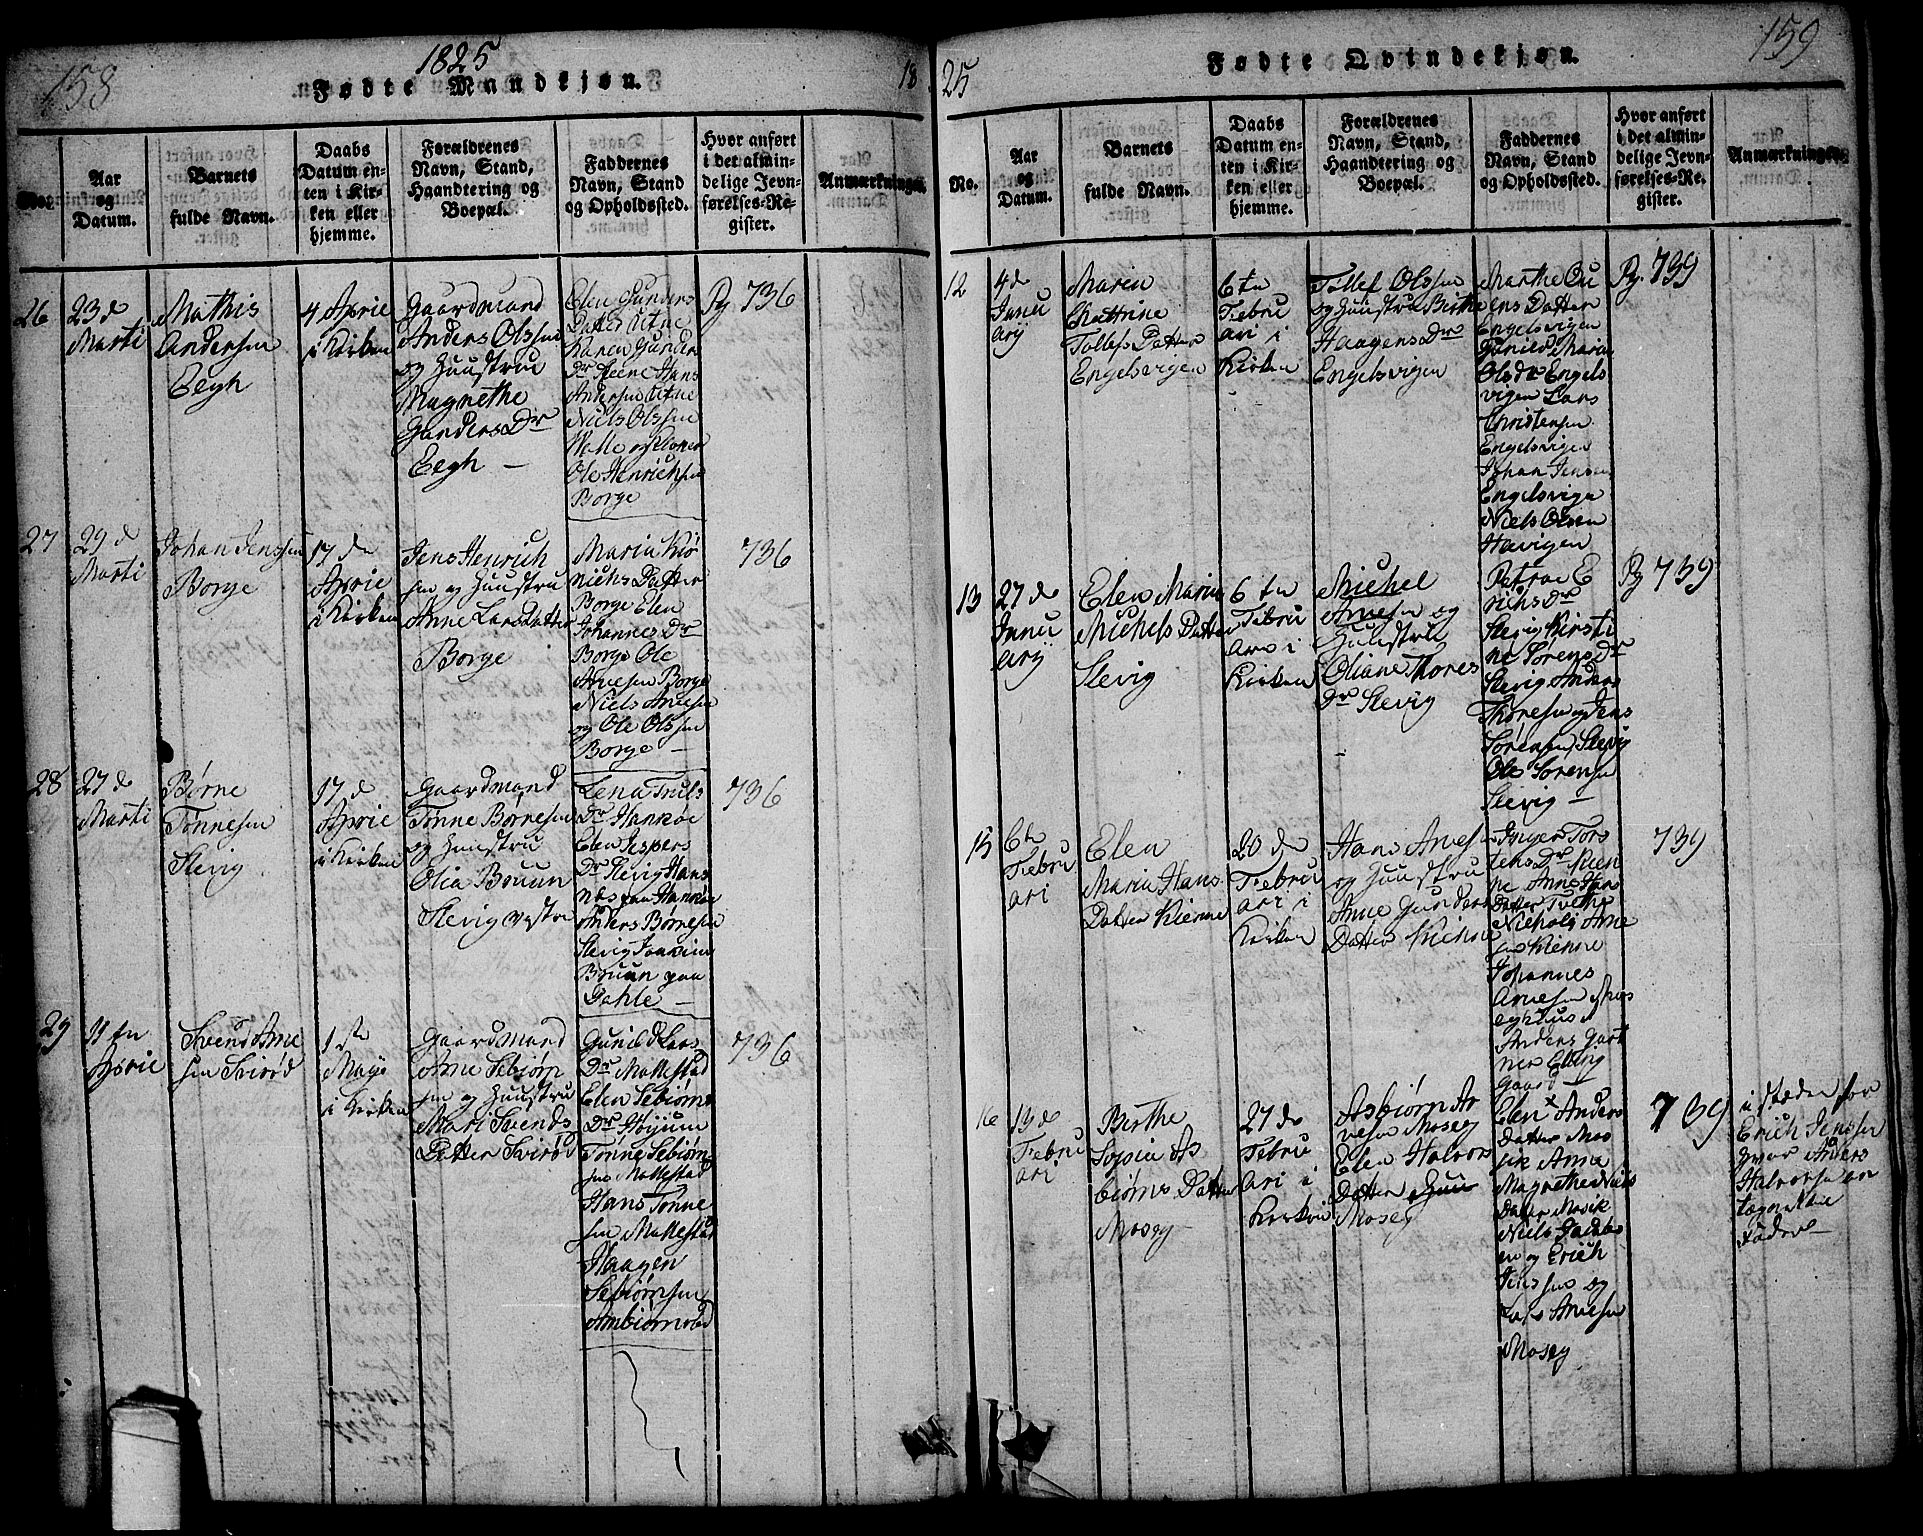 158
1825
Fødte Mandkjøn.
18
No.
Aar
og
Datum.
Barnets
fulde Navn.
Daabs
Datum en-
ten i Kir-
ken eller
hjemme.
Forældrenes
Navn, Stand,
Haandtering og
Boepæl.
Faddernes
Navn, Stand
og Opholdssted.
Hvor anført
i det almin-
delige Jevn-
førelses-Re-
gister.
Anmærkninger.
26
23 d
Marti
Mathis
Andersen
Eegh
4 Aprie
i Kirken
Gaardmand
Anders Olssen
og Huustru
Magnethe
Gunders Dr
Eegh –
Elen Gunders
Datter Utne
Karen Gunders
Dr Hans
Andersen Utne
Niels Olssen
og
Ole Henrichsen
Borge
Pg 736
27
29 d
Marti
Johan Jenssen
Borge
17 de
Aprie
i Kirken
Jens Henrich
sen og Huustru
Anne Larsdatter
Borge
Maria
Datter
Borge Elen
Johannes Dr
Borge Ole
Arnesen Borge
Niels Arnesen
og Ole Olssen
Borge –
736
28
27 d
Marti
Børne
Tønnesen
Slevig
17 d
Aprie
i Kirken
Gaardmand
Tønne Børnesen
og Huustru
Olia Bruun
Slevig vestre
Lena Truls
Dr Hankøe
Elen Jespers
Dr Slevig Hans
paa Hankøe
Anders Børnesen
Slevig Joakim
Bruun paa
Dahle –
736
29
11 tn
Aprie
Svend Arne
sen Svirød
1 st
Maye
i Kirken
Gaardmand
Arne Sebiørn
sen og Huustru
Mari Svends
Datter Svirød
Gunild Lars
Dr Mallestad
Elen Sebiørns
Dr Høyum
Tønne Sebiørn
sen Mallestad
Hans Tønne
sen Mallestad
Haagen
Sebiørnsen
Ambiørnrød
736
25
Fødte Qvindekjøn.
159
No.
Aar
og
Datum.
Barnets
fulde Navn.
Daabs
Datum en-
ten i Kir-
ken eller
hjemme.
Forældrenes
Navn, Stand,
Haandtering og
Boepæl.
Faddernes
Navn, Stand
og Opholdssted.
Hvor anført
i det almin-
delige Jevn-
førelses-Re-
gister.
Anmærkninger.
12
4 d
Janu
ary
Maren
Chattrine
Tollefs Datter
Engelsvigen
6 tn
Febru
ari i
Kirken
Tollef Olssen
og Huustru Birthe
Haagens Dr
Engelsvigen
Marthe
Datter
Engelsvigen
Gunild Maria
Olsdr Engels
vigen Lars
Christensen
Engelsvigen
Johan Jensen
Engelsvigen
Niels Olsen
Havigen
Pg. 739
13
27 de
Janu
ary
Elen Maria
Michels Datter
Slevig
6 tn
Febru
ari i
Kirken
Michel
Arnesen og
Huustru
Oliane Thores
Dr Slevig
Petrae E
richs Dr
Slevig Kirsti
ne Sørens Dr
Slevig Anders
Thoresen og Jens
Sørensen Slevig
Ole Sørensen
Slevig –
Pg 739
15
6 tn
Febru
ari
Elen
Maria Hans
Datter Kienne
20 de
Febru
ari i
Kirken
Hans Arnesen
og Huustru
Anne Gunders
Datter Kienne
Inger Tors
tens Dr Kien
ne Anne Hans
Datter
Nicholi Arne
sen Kienne
Johannes
Arnesen
Anders Gart
ner Elling
Gaard –
739
16
19 d
Febru
ari
Berthe
Sopia As
biørns Datter
Moseg
27 de
Febru
ari i
Kirken
Asbiørn Ar
nesen Moseg
Elen Halvors
Datter
Moseg
Elen Anders
Datter Mos
Anna
Magrethe Niels
Datter Mosik
Niels Jacobs
en og Erich
Jenssen og
Lars Arnesen
Moseg
739
i stæden for
Erich Jenssen
hvor Anders
Halvorsen en
tagnæt
Fader –